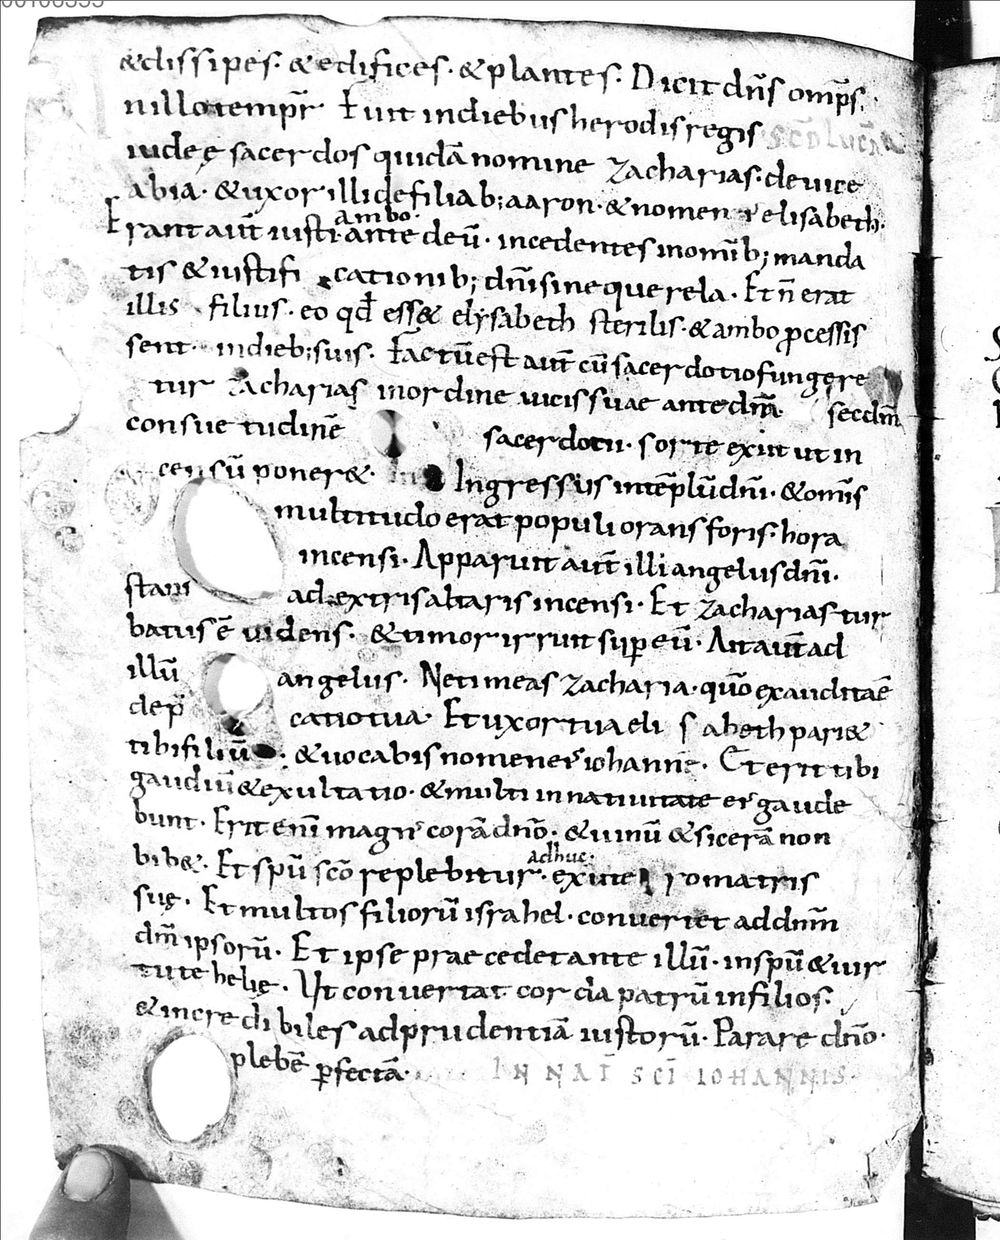 & dissipes· & edifices· & plantes· Dicit dn̄s omp̄s·
n illo temp̄r· Fuit in diebus herodis regis SCD LUCĀ
iudeę sacerdos quidā nomine zacharias· de uice
abia· & uxor illi de filiab; aaron· & nomen ei᾿ elisabeth·
ambo·
Erant aut̄ iusti· ante deū· incedentes in omīb; manda
tis & iustifi cationib; dn̄i sine querela· Et n̄ erat
illis filius· eo qđ ess& elysabeth sterilis· & ambo ꝓcessis
sent· in dieb; suis· Factū est aut̄ cū sacerdotio fungere
tur zacharias in ordine uicis suae ante dm̄· secdm̄
consuetudinē sacerdotii· sorte exiit ut in
censū poner&· Ingressus in tēplū dn̄i· & om̄s
multitudo erat populi orans foris· hora
incensi· Apparuit aut̄ illi angelus dn̄i·
stans a dextris altaris incensi· Et zacharias tur
batus ē uidens· & timor irruit suꝑ eū· Ait aut̄ ad
illū angelus· Ne timeas zacharia· quō exaudita ē
dep̄ catio tua· Et uxor tua eli sabeth pari&
tibi filiū· & uocabis nomen ei᾿ iohanne· Et erit tibi
gaudiū & exultatio· & multi in natiuitate ei᾿ gaude
bunt· Erit eni̅ magn᾿ corā dn̄o· & uinū & sicerā non
bib&· Et spū sc̄o replebitur· ex utero matris
adhuc·
suę· Et multos filiorū israhel· conuertet ad dn̄m
dm̄ ipsorū· Et ipse praecedet ante illū· in spū & uir
tute helię· Ut conuertat corda patrū in filios·
& incredibiles ad prudentiā iustorū· Parare dn̄o·
plebē ꝑfectā· IN NAT̄ SC̄I IOHANNIS·